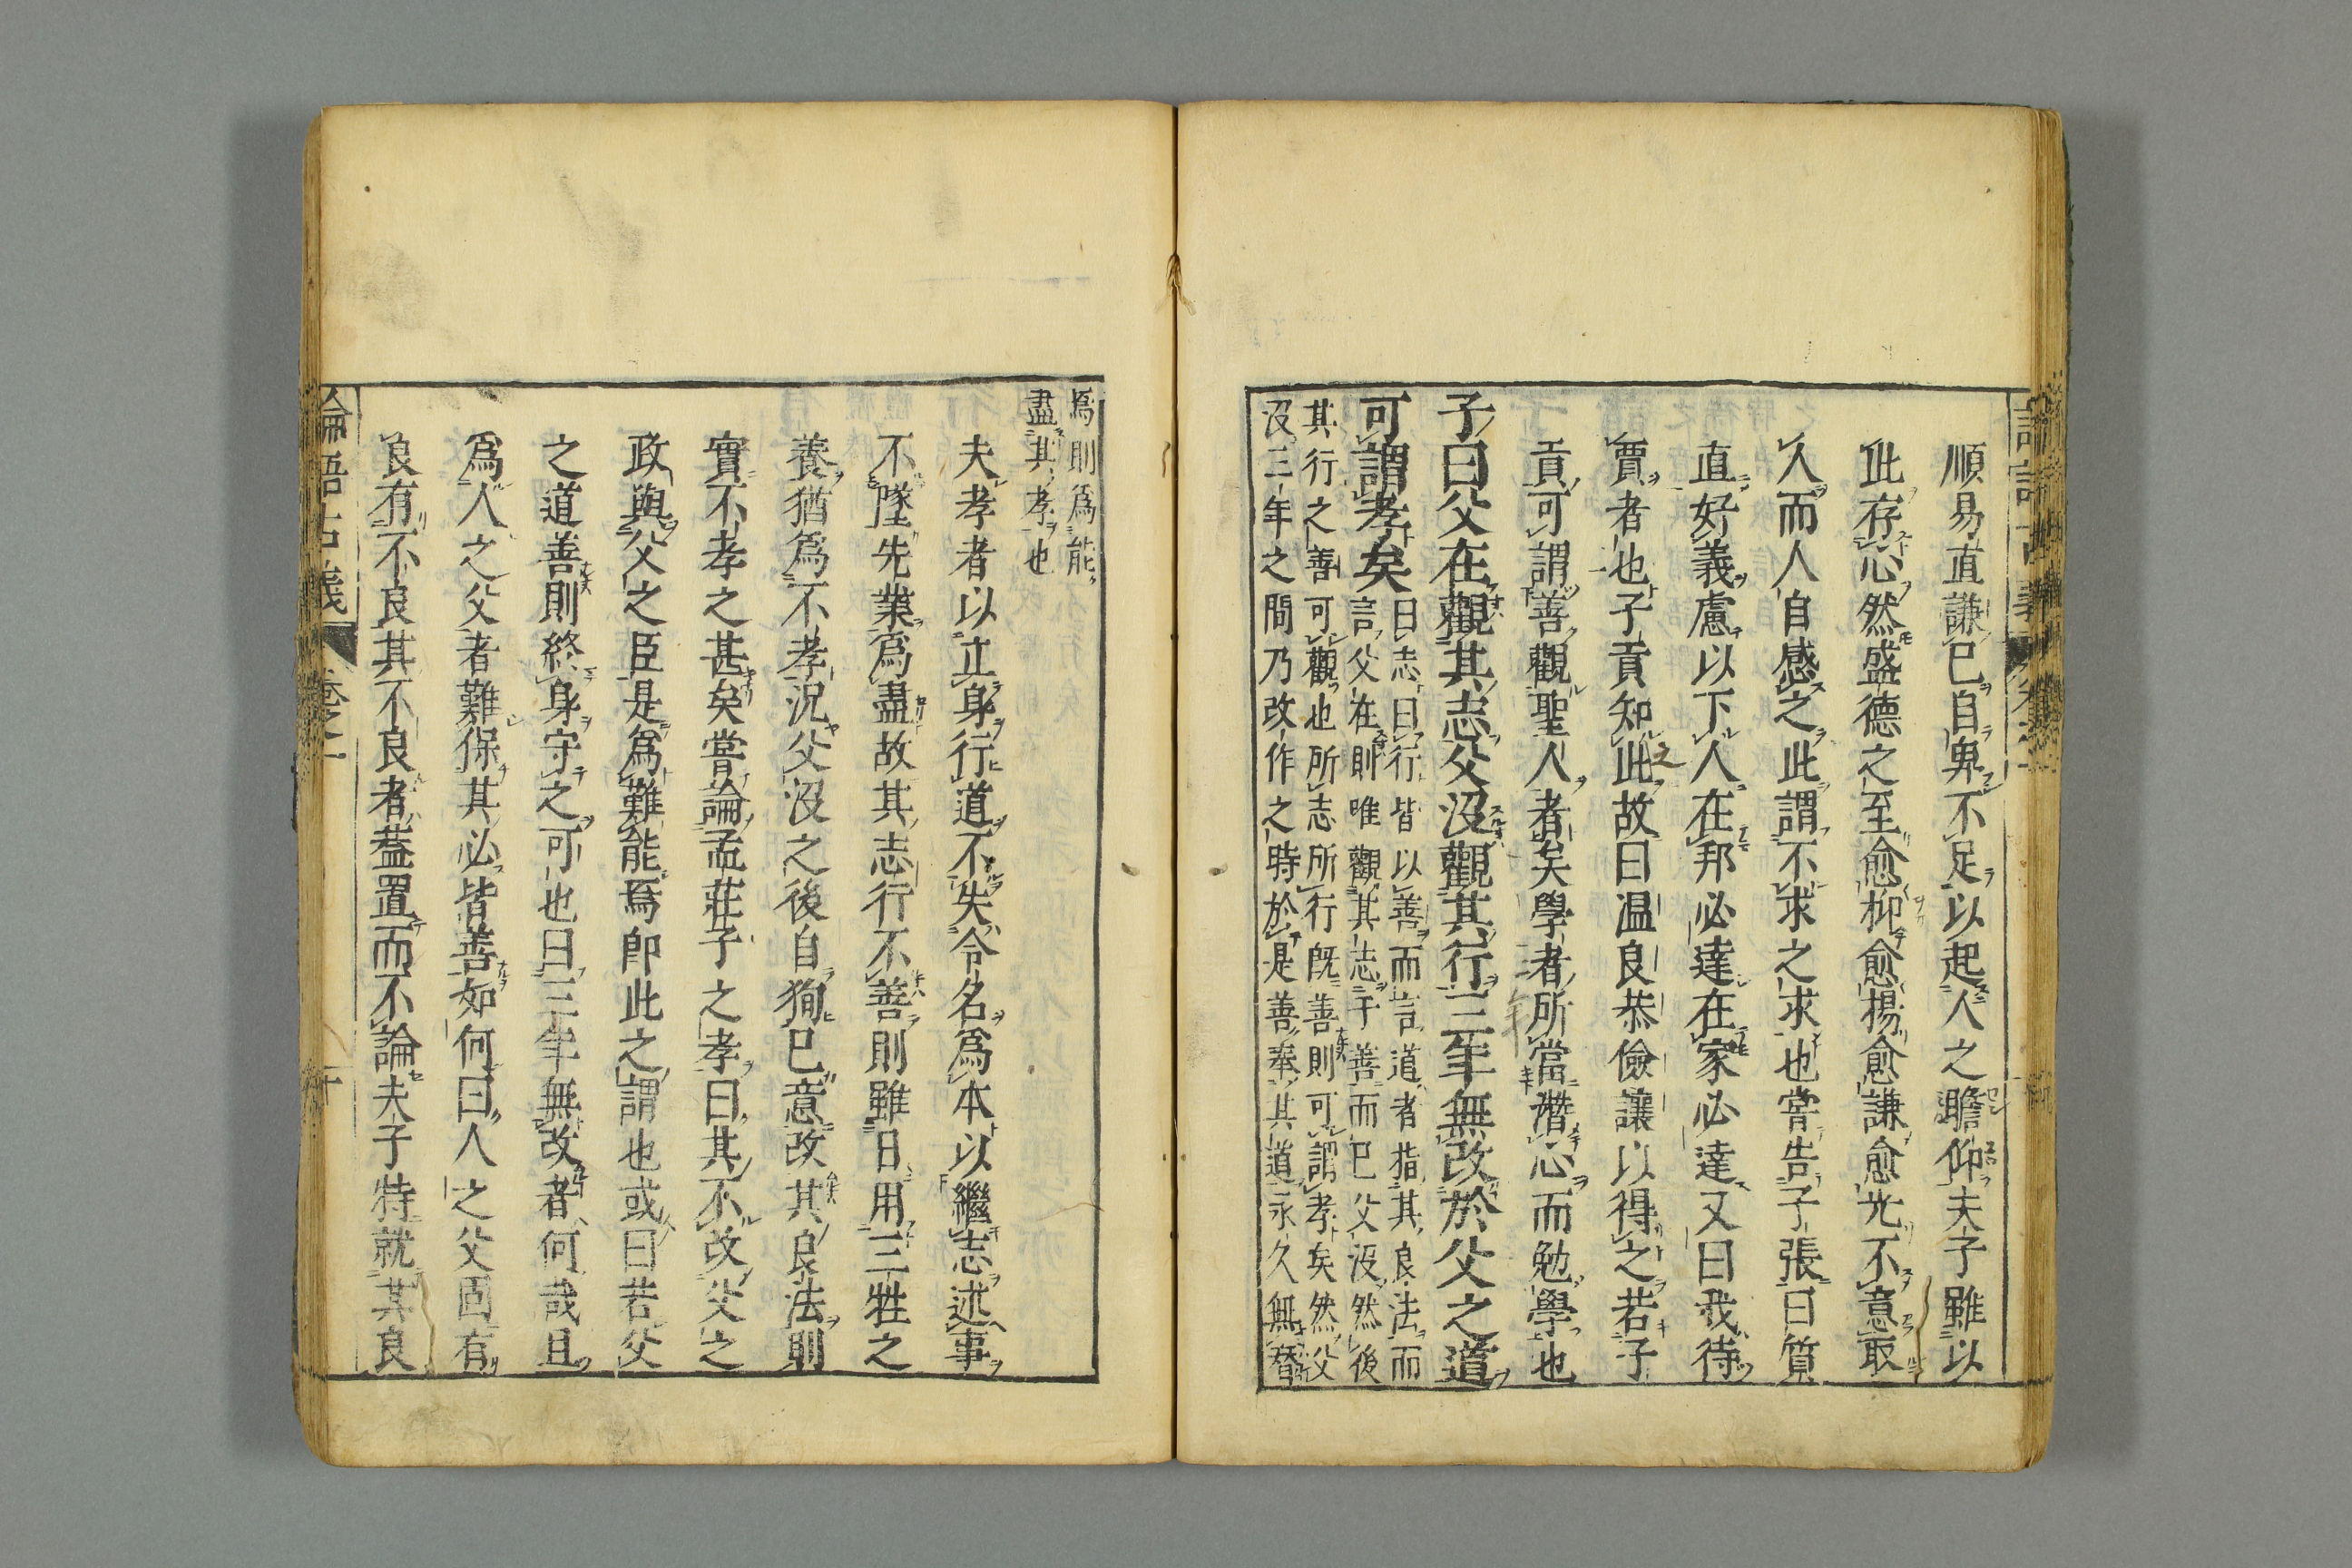 順易直謙己自卑不足以起人之瞻仰夫子雖以
此存心然盛德之至愈抑愈揚愈謙愈光不意取
人而人自感之此謂不求之求也嘗告子張曰質
直好義慮以下人在邦必達在家必達又曰我待
賈者也子貢知此故曰温良恭儉讓以得之若子
貢可謂善觀聖人者矣學者所當潛心而勉學也
子曰父在觀其志父沒觀其行三年無改於父之道
可謂孝矣
曰志曰行皆以善而言道者指其良法而
言父在則唯觀其志于善而已父沒然後
其行之善可觀也所志所行既善則可謂孝矣然父
沒三年之間乃改作之時於是善奉其道永久無替
焉則爲能
盡其孝也
夫孝者以立身行道不失令名爲本以繼志述事
不墜先業爲盡故其志行不善則雖日用三牲之
養猶爲不孝況父沒之後自狥己意改其良法則
實不孝之甚矣嘗論孟莊子之孝曰其不改父之
政與父之臣是爲難能焉卽此之謂也或曰若父
之道善則終身守之可也曰三年無改者何哉且
爲人之父者難保其必皆善如何曰人之父固有
良有不良其不良者葢置而不論夫子特就其良
論語古義 卷之一